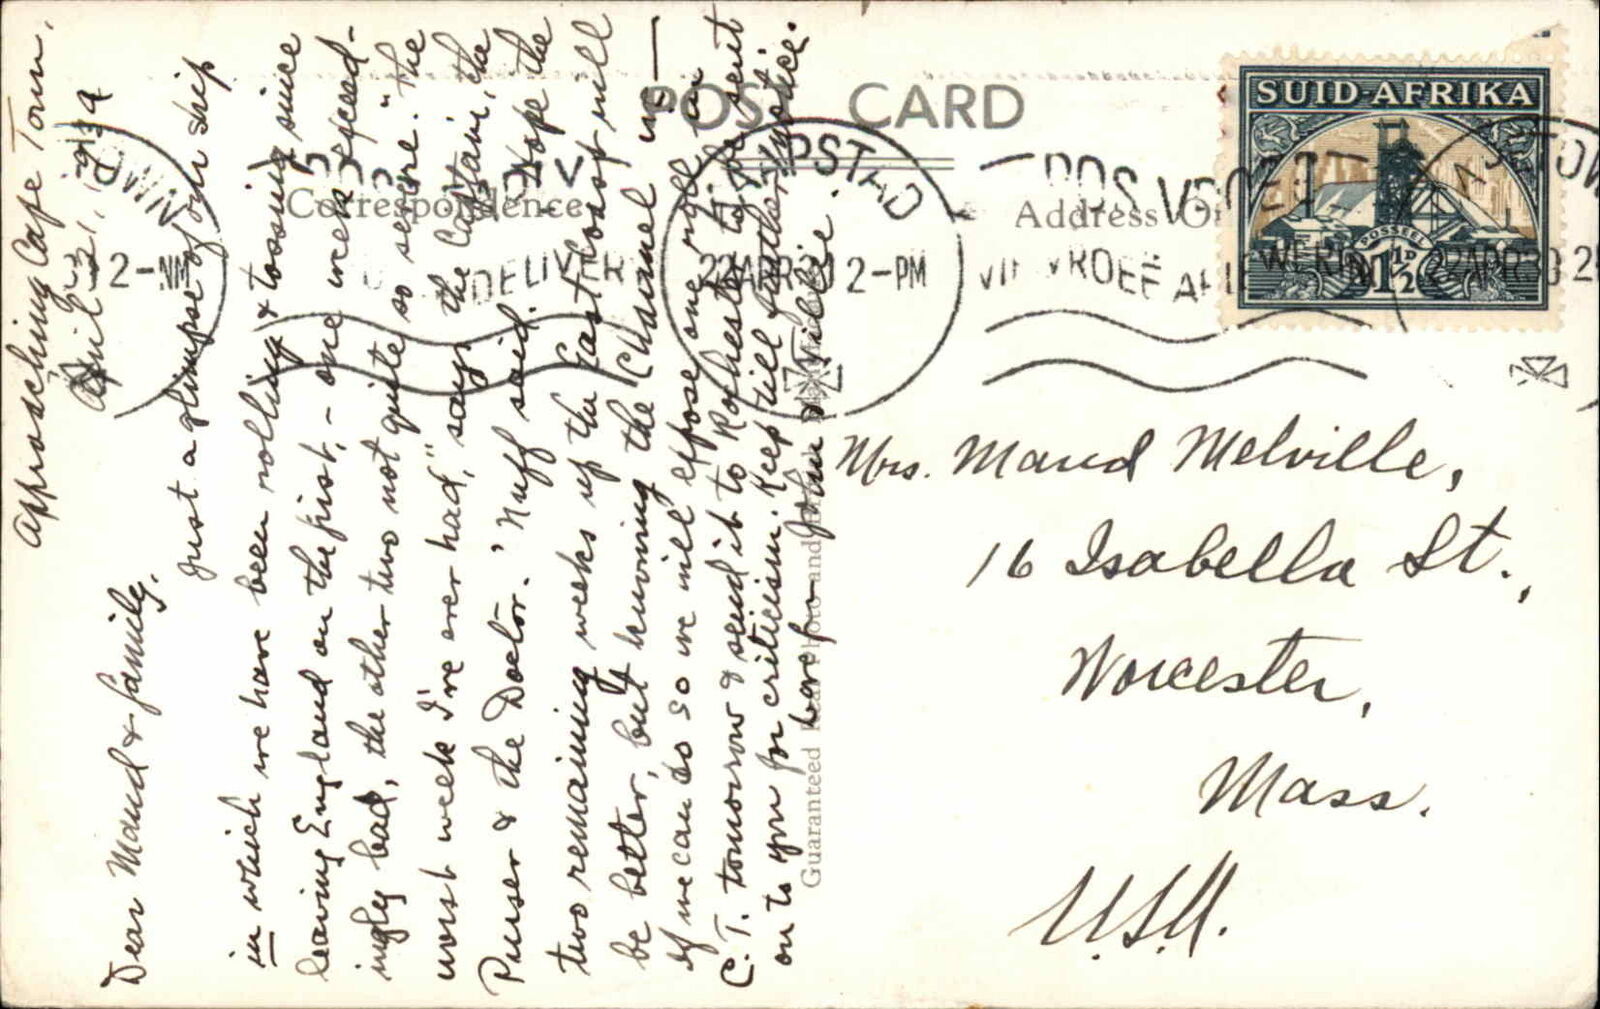 POST CARD
Correspondence
Address Only
SUID-AFRIKA
POSSEEL
1½D
KAAPSTAD
22 APR 39 2-PM
POS VROEG
VIR VROEË AFLEWERING
2-PM
DELIVERY
22 APR 39 2
Approaching Cape Town,
April 21, 1939
Dear Maud & family,
Just a glimpse of our ship
in which we have been rolling & tossing since
leaving England on the first, - one week exceed-
ingly bad, the other two not quite so severe. "The
worst week I've ever had," says the Captain, the
Purser & the Doctor. 'Nuff said. Hope the
two remaining weeks up the East Coast will
be better, but knowing the Channel is —
If we can do so we will expose one roll in
C.T. tomorrow & send it to Rochester to be sent
on to you for criticism. Keep till further notice.
Love from John & Tillie.
Guaranteed Real Photo and
Mrs. Maud Melville,
16 Isabella St.,
Worcester,
Mass.
U.S.A.